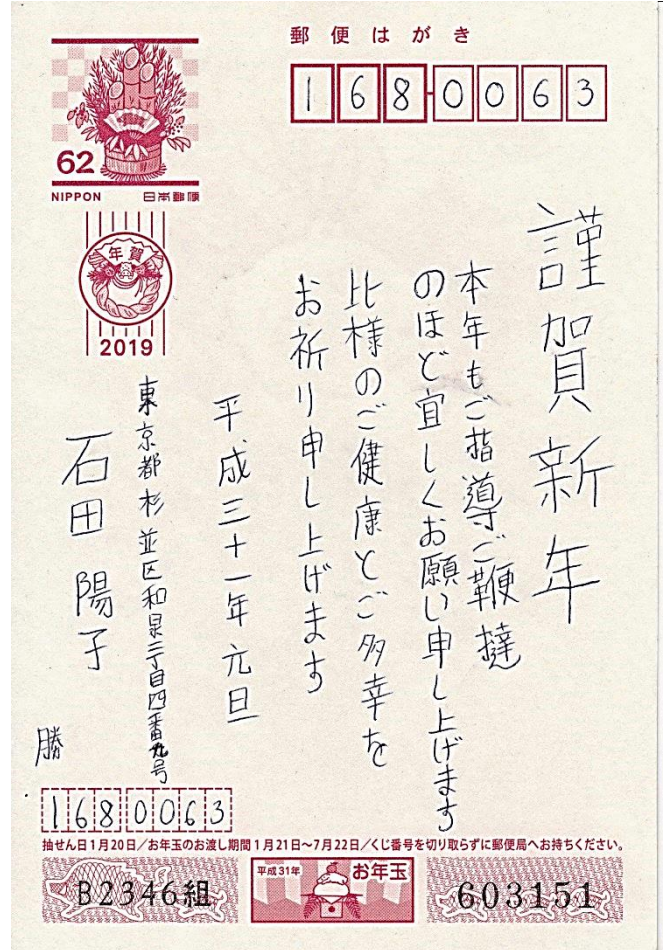 郵便はがき
168-0063
62
NIPPON 日本郵便
年賀
2019
謹賀新年
本年もご指導ご鞭撻
のほど宜しくお願い申し上げます
比様のご健康とご多幸を
お祈り申し上げます
平成三十一年元旦
東京都杉並区和泉二丁目四番九号
石田 陽子
勝
1680063
抽せん日1月20日／お年玉のお渡し期間1月21日～7月22日／くじ番号を切り取らずに郵便局へお持ちください。
B2346組
平成31年
お年玉
603151